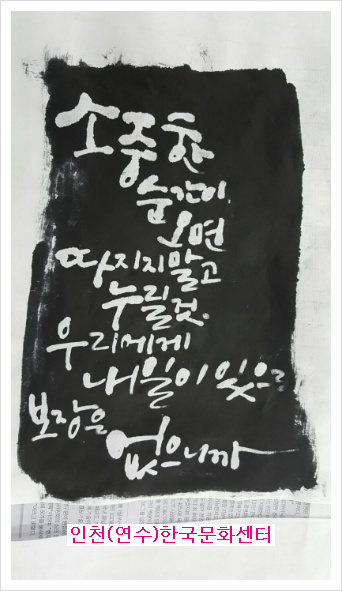 소중한
순간이
오면
따지지말고
누릴것.
우리에게
내일이 있으리
보장은
없으니까
인천(연수)한국문화센터